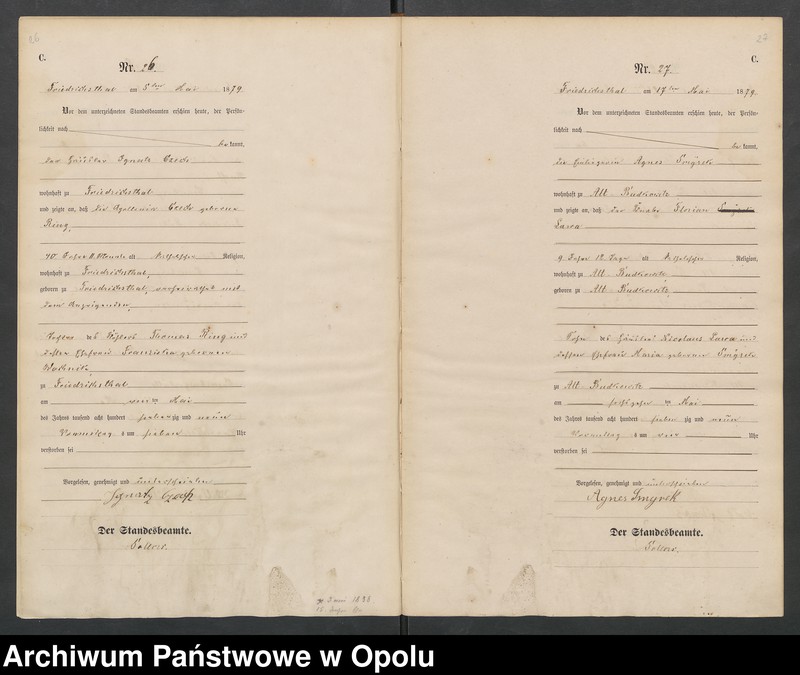 26
C.
Nr. 26.
Friedrichsthal am 5ten Mai 1879.
Vor dem unterzeichneten Standesbeamten erschien heute, der Persön-
lichkeit nach
bekannt,
der Häusler Ignatz Czech
wohnhaft zu Friedrichsthal
und zeigte an, daß die Apollonia Czech geborene
Ring,
40 Jahre Monate alt katholischer Religion,
wohnhaft zu Friedrichsthal,
geboren zu Friedrichsthal, verheirathet mit
dem Anzeigenden,
Tochter des Thomas Ring und
dessen Ehefrau Franziska geborenen
zu Friedrichsthal
am Mai
des Jahres tausend acht hundert siebenzig und neun
Vormittag s um sieben Uhr
verstorben sei
Vorgelesen, genehmigt und unterschrieben
Ignatz Czech
Der Standesbeamte.
27
C.
Nr. 27.
Friedrichsthal am 17ten Mai 1879.
Vor dem unterzeichneten Standesbeamten erschien heute, der Persön-
lichkeit nach
bekannt,
die Agnes
wohnhaft zu Alt Budkowitz
und zeigte an, daß der Knabe Florian
9 Jahre 12 Tage alt katholischer Religion,
wohnhaft zu Alt Budkowitz
geboren zu Alt Budkowitz,
Sohn des Häuslers Nicolaus und
dessen Ehefrau Maria geborenen
zu Alt Budkowitz
am sechszehn ten Mai
des Jahres tausend acht hundert sieben zig und neun
Vormittag s um vier Uhr
verstorben sei
Vorgelesen, genehmigt und unterschrieben
Agnes Smyrek
Der Standesbeamte.
Archiwum Państwowe w Opolu